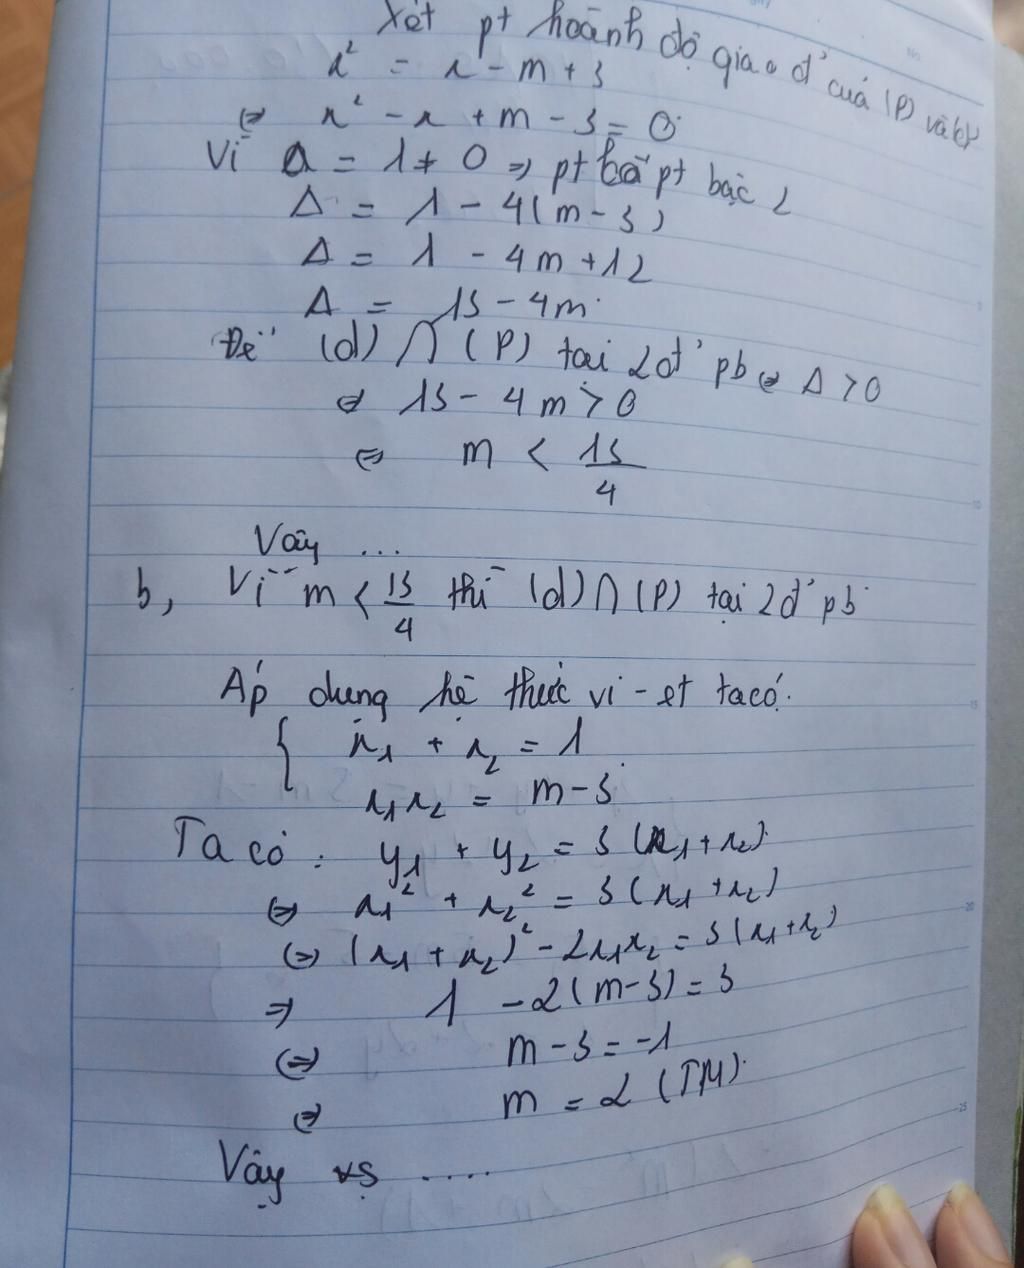 Xét pt hoành độ giao đ' của (P) và (d)
x² = x - m + 3
⇔ x² - x + m - 3 = 0
Vì a = 1 ≠ 0 ⇒ pt là pt bậc 2
Δ = 1 - 4(m - 3)
Δ = 1 - 4m + 12
Δ = 13 - 4m
Để (d) ∩ (P) tại 2đ' pb ⇔ Δ > 0
⇔ 13 - 4m > 0
⇔ m < 13/4
Vây ...
b, Vì m < 13/4 thì (d) ∩ (P) tại 2đ' pb
Áp dung hệ thức vi-et ta có:
{ x₁ + x₂ = 1
x₁x₂ = m - 3
Ta có: y₁ + y₂ = 3(x₁ + x₂)
⇔ x₁² + x₂² = 3(x₁ + x₂)
⇔ (x₁ + x₂)² - 2x₁x₂ = 3(x₁ + x₂)
⇒ 1 - 2(m - 3) = 3
⇔ m - 3 = -1
⇔ m = 2 (TM)
Vậy vs ....